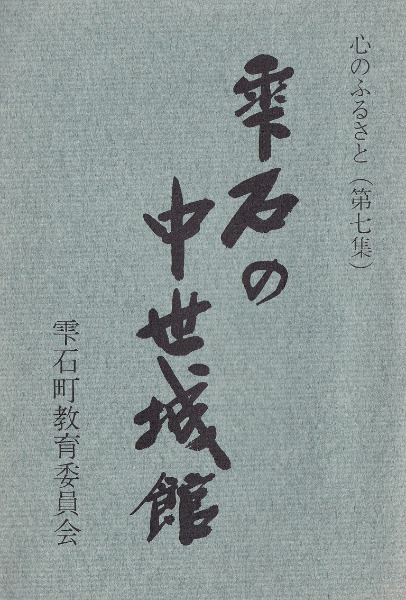 心のふるさと（第七集）
雫石の
中世城館
雫石町教育委員会